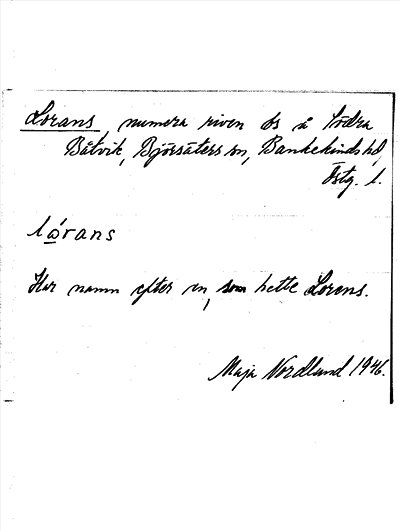 Lorans, numera riven bs å Södra
Båtvik, Björsäters sn, Bankekinds hd,
Östg. l.
lórans
Har namn efter en, som hette Lorens.
Maja Nordlund 1946.